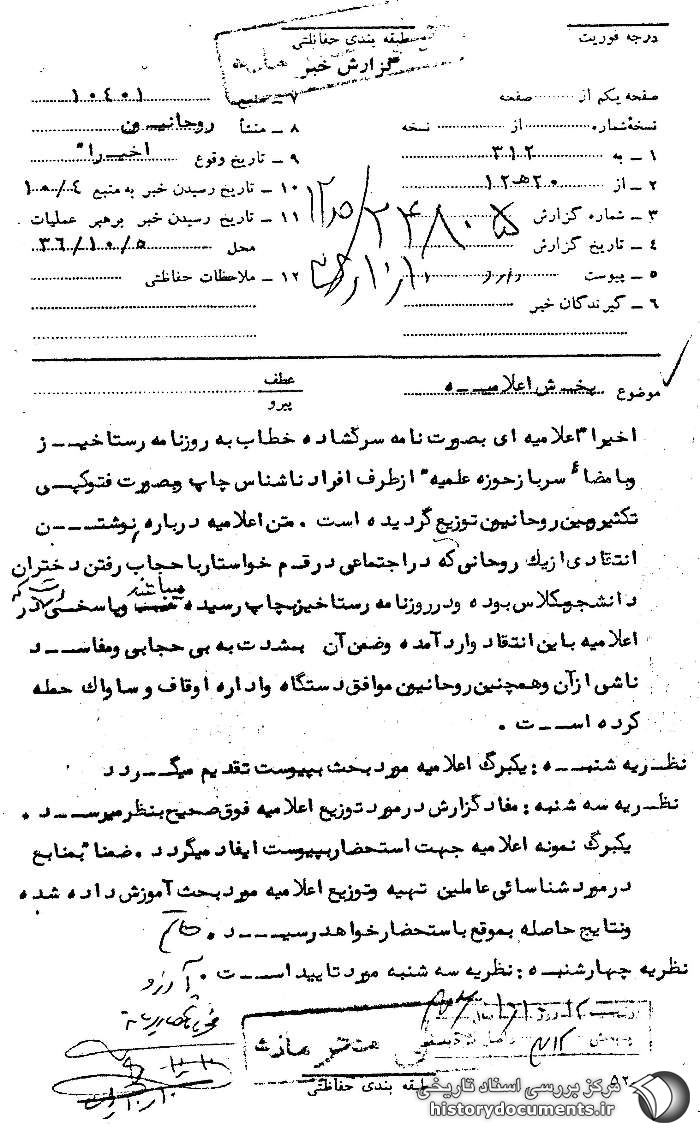 درجه فوریت
طبقه بندی حفاظتی
گزارش خبر
صفحه یکم از صفحه
نسخهٔ شماره از نسخه
۱ ــ به ۳۱۲
۲ ــ از ۲۰ هـ ۱۲
۳ ــ شماره گزارش
۴ ــ تاریخ گزارش
۵ ــ پیوست دارد
۶ ــ گیرندگان خبر
۷ ــ منبع ۱۰۴۰۱
۸ ــ منشأ روحانیــون
۹ ــ تاریخ وقوع اخیرا"
۱۰ ــ تاریخ رسیدن خبر به منبع ۱۰/۴
۱۱ ــ تاریخ رسیدن خبر برهبر عملیات
محل ۳۶/۱۰/۵
۱۲ ــ ملاحظات حفاظتی
موضوع پخــش اعلامیــه
عطف
پیرو
اخیرا" اعلامیه ای بصورت نامه سرگشاده خطاب به روزنامه رستاخیــز
وبامضاء سرباز حوزه علمیه" ازطرف افراد ناشناس چاپ وبصورت فتوکپــی
تکثیروبین روحانیون توزیع گردیده است . متن اعلامیه درباره نوشتــن
انتقادی ازیک روحانی که دراجتماعی درقم خواستار با حجاب رفتن دختران
دانشجوبکلاس بوده ودرروزنامه رستاخیزبچاپ رسیده میباشد وپاسخی است که در
اعلامیه باین انتقاد وارد آمده وضمن آن بشدت به بی حجابی ومفاســد
ناشی ازآن وهمچنین روحانیون موافق دستگاه واداره اوقاف وساواک حمله
کرده اســت .
نظــریه شنبــه : یکبرگ اعلامیه مورد بحث بپیوست تقدیم میگــردد
نظــریه سه شنبه : مفاد گزارش درمورد توزیع اعلامیه فوق صحیح بنظرمیرســد .
یکبرگ نمونه اعلامیه جهت استحضاربپیوست ایفاد میگردد . ضمنا" بمنابع
درمورد شناسائی عاملین تهیه وتوزیع اعلامیه مورد بحث آموزش داده شده
ونتایج حاصله بموقع باستحضارخواهد رسیــد .
نظریه چهارشنبــه : نظریه سه شنبه مورد تایید اســت . آرزو
طبقه بندی حفاظتی
۵۲
مرکز بررسی اسناد تاریخی
historydocuments.ir